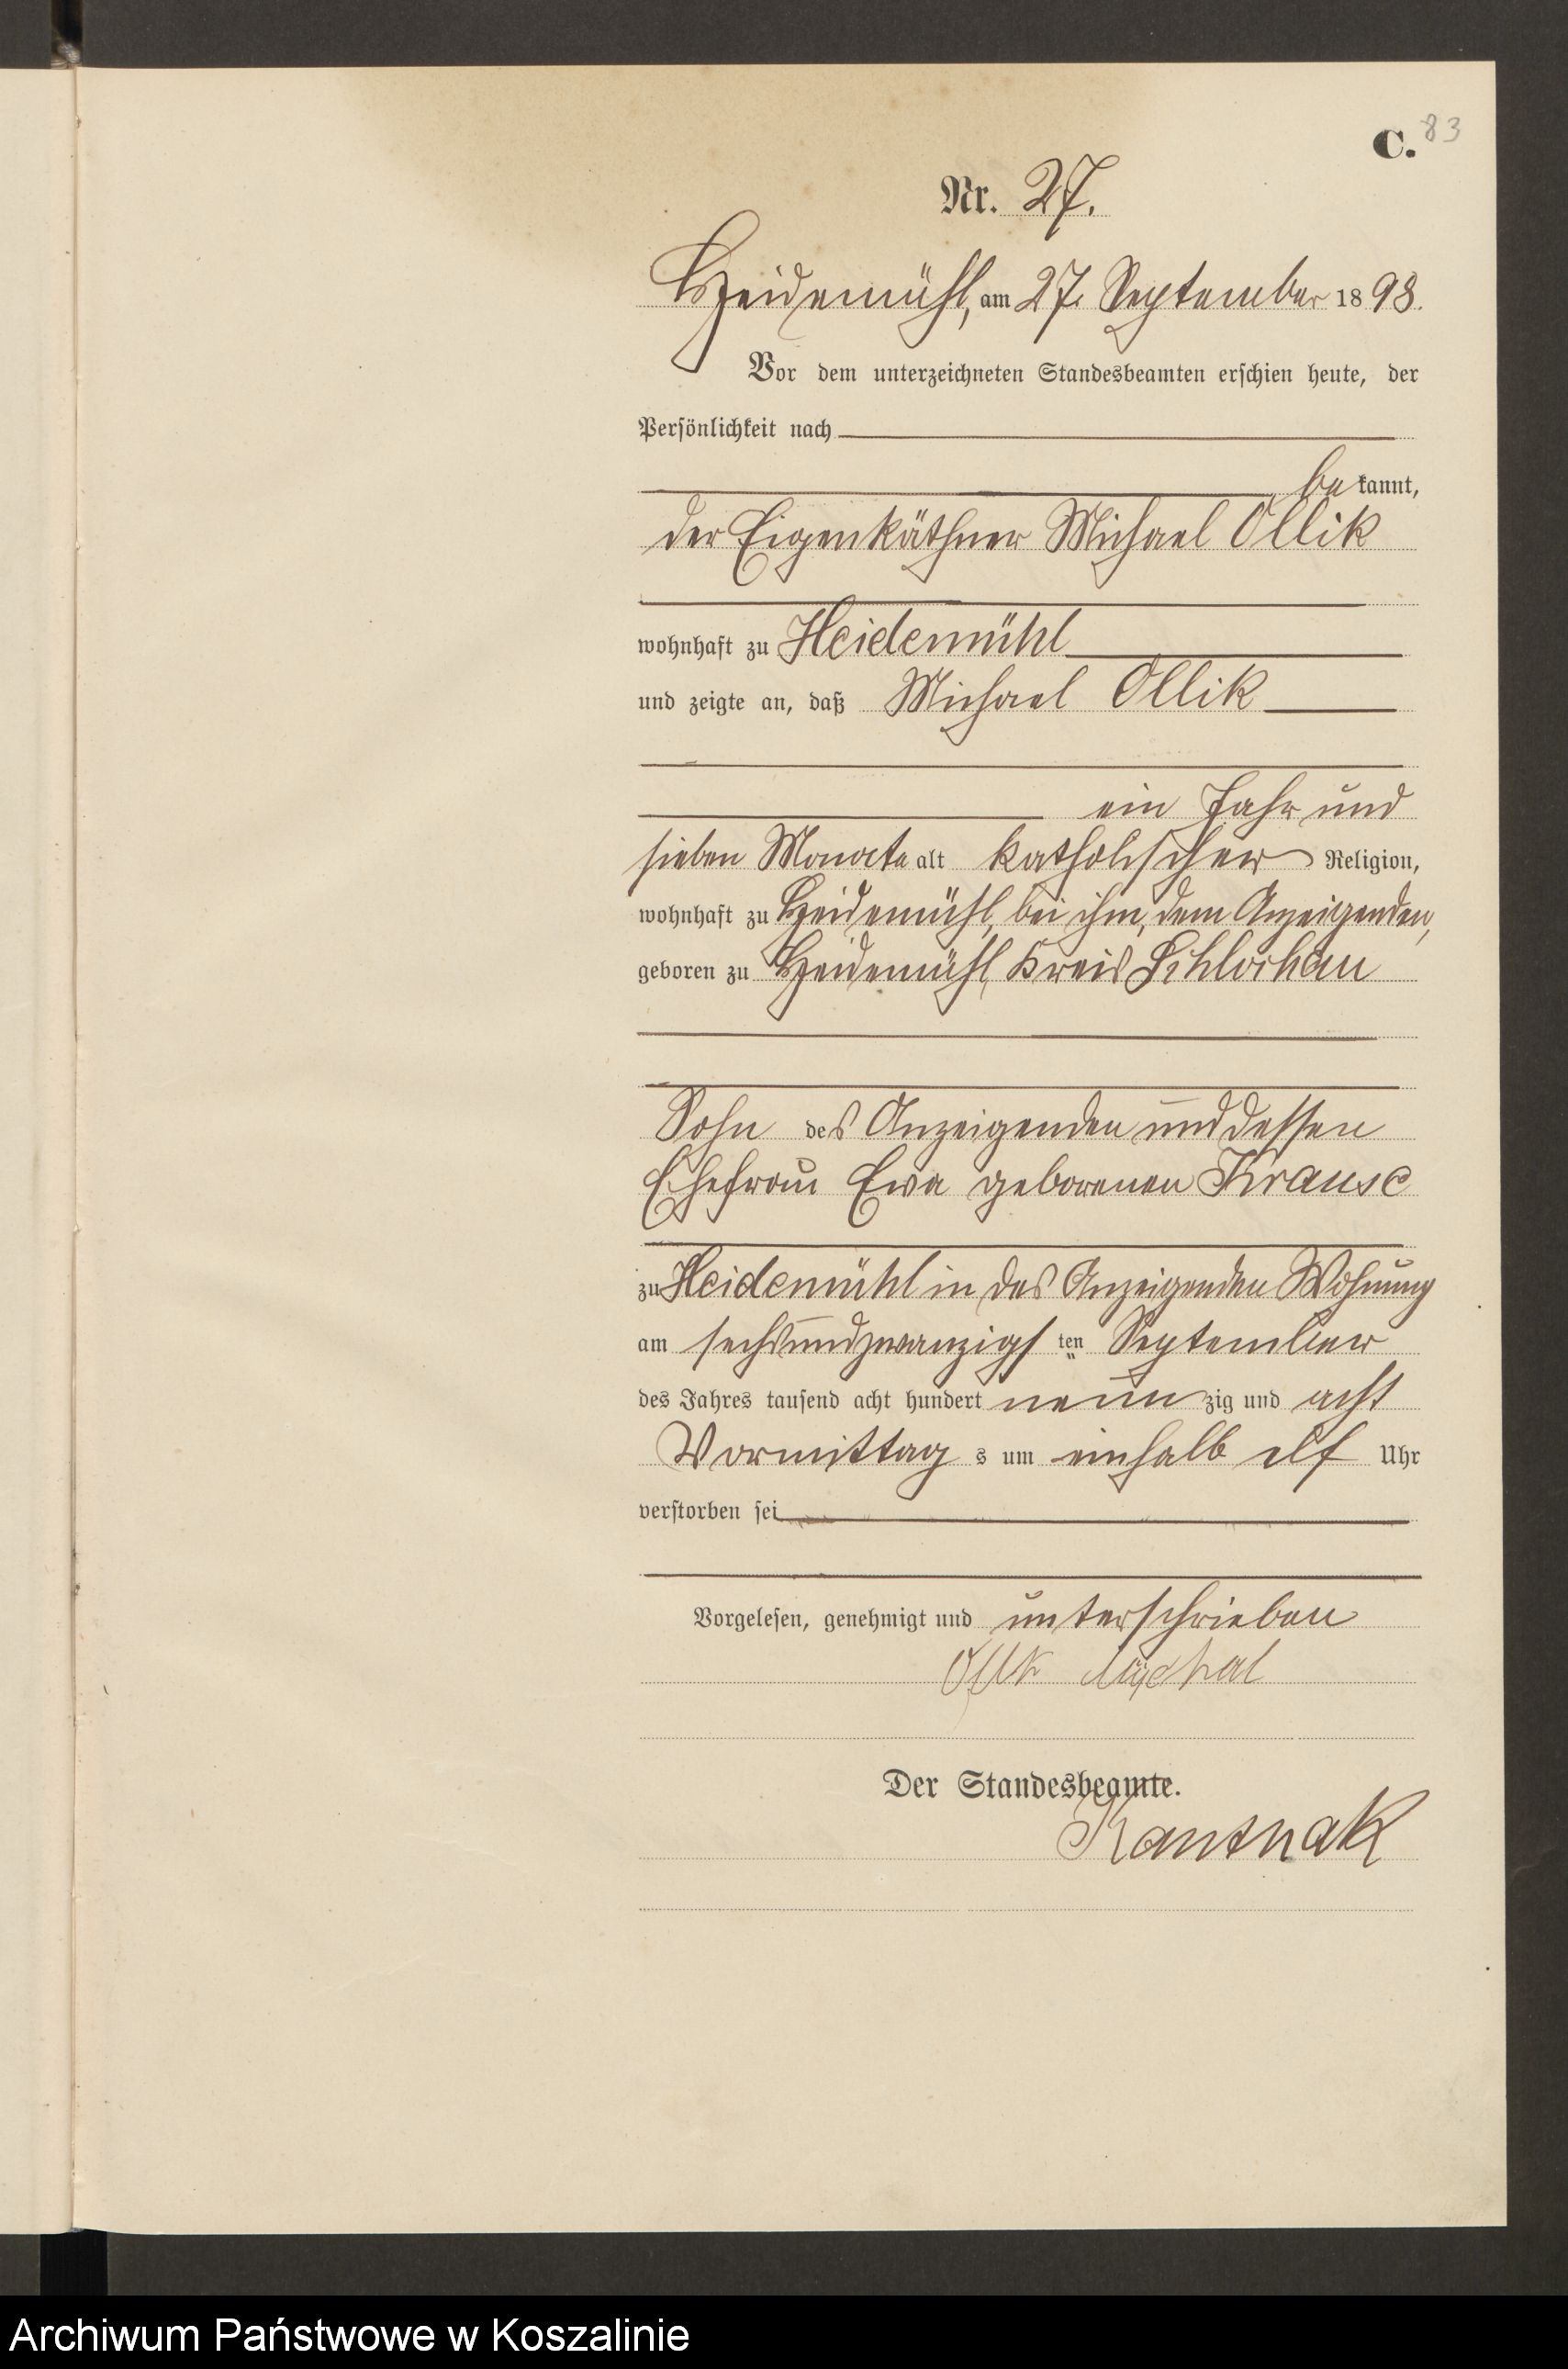 C. 83
Nr. 27.
Heidemühl, am 27. September 1898.
Vor dem unterzeichneten Standesbeamten erschien heute, der
Persönlichkeit nach
be kannt,
der Eigenkäthner Michael Ollik
wohnhaft zu Heidemühl
und zeigte an, daß Michael Ollik
ein Jahr und
sieben Monate alt katholischer Religion,
wohnhaft zu Heidemühl, bei ihm, dem Anzeigenden,
geboren zu Heidemühl, Kreis Schlochau
Sohn des Anzeigenden und dessen
Ehefrau Ewa geborenen Krause
zu Heidemühl in des Anzeigenden Wohnung
am sechsundzwanzigsten September
des Jahres tausend acht hundert neunzig und acht
Vormittag s um einhalb elf Uhr
verstorben sei
Vorgelesen, genehmigt und unterschrieben
Der Standesbeamte.
Kantnak
Archiwum Państwowe w Koszalinie